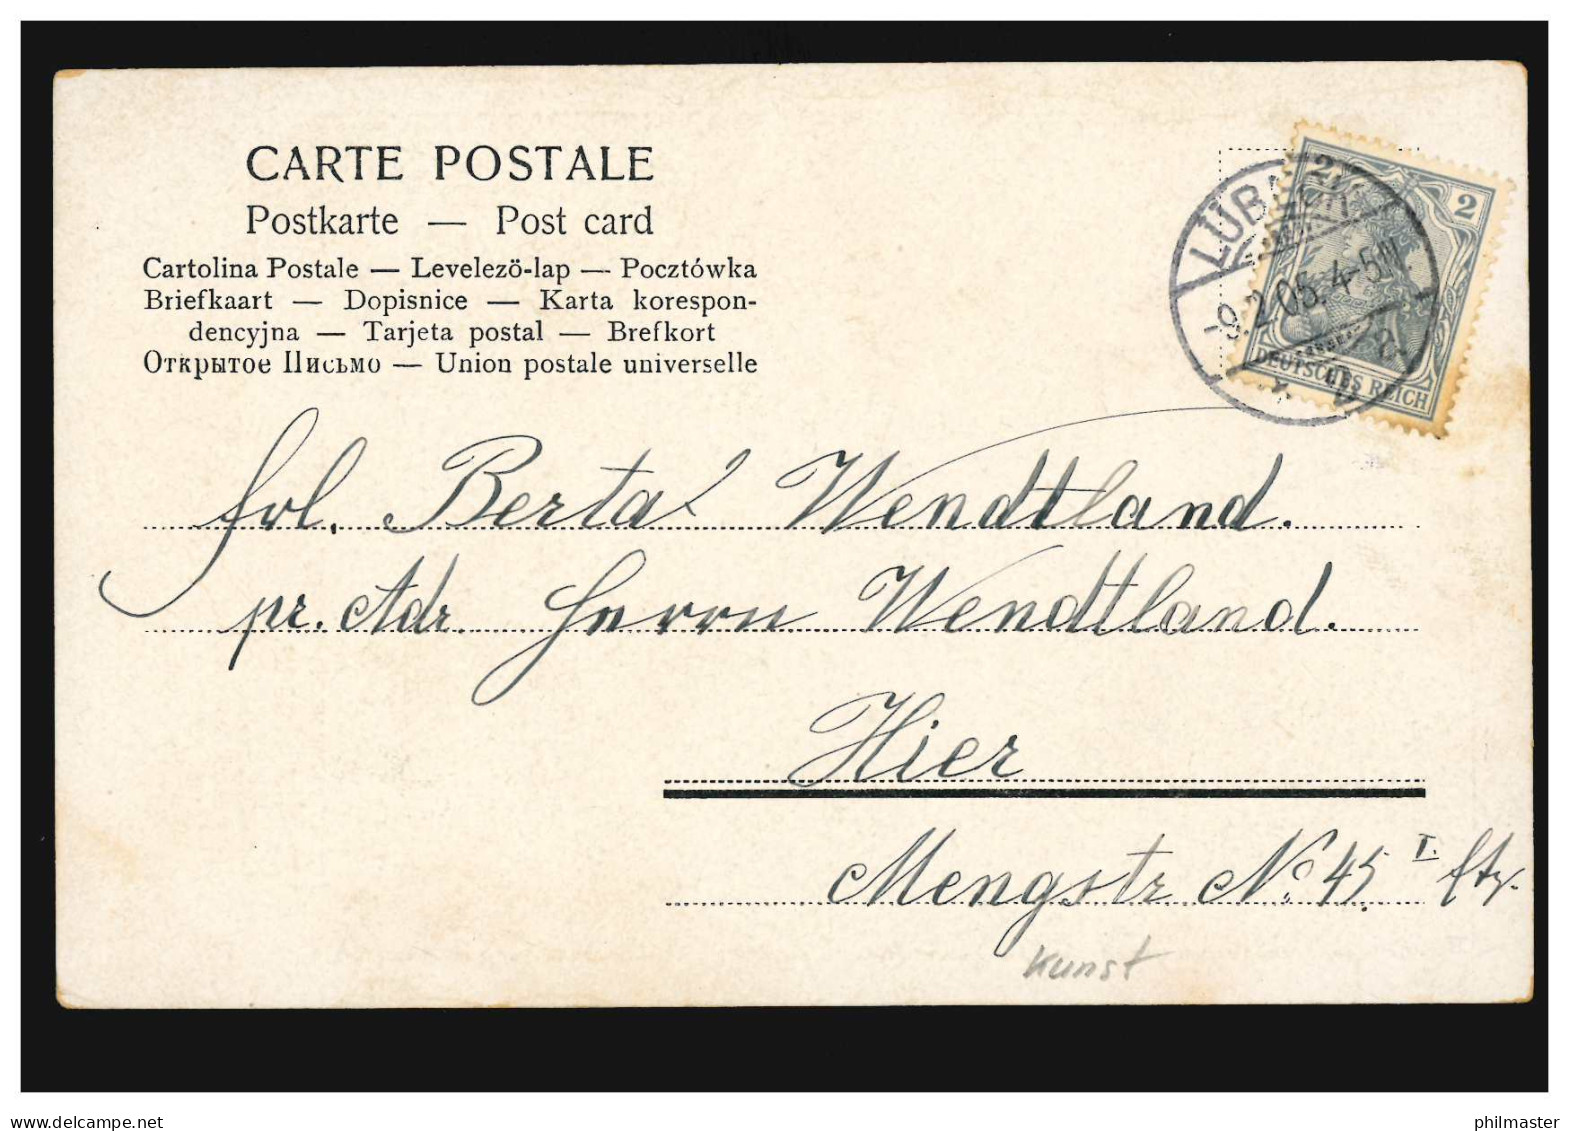 CARTE POSTALE
Postkarte — Post card
Cartolina Postale — Levelező-lap — Pocztówka
Briefkaart — Dopisnice — Karta korespon-
dencyjna — Tarjeta postal — Brefkort
Открытое Письмо — Union postale universelle
LÜBECK
9.2.05. 4-5N.
2
DEUTSCHES REICH
Frl. Berta Wendtland.
pr. Adr. Herrn Wendtland.
Hier
Mengstr. No. 45 I. Etg.
Kunst
www.delcampe.net
philmaster